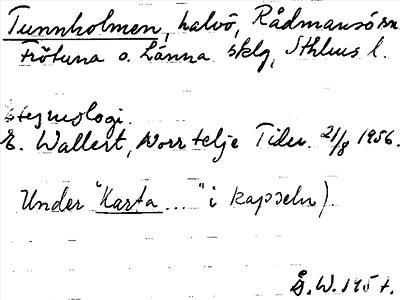 Tunnholmen, halvö, Rådmansö sn
Frötuna o. Länna sklg, Sthlms l.
Etymologi.
E. Wallert, Norrtelje Tidn. 21/8 1956.
Under "Karta ..." i kapseln).
Å.W. 1957.